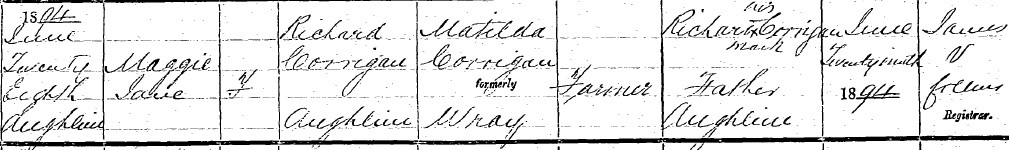 1894
June
Twenty
Eighth
Aughlin
Maggie
Jane
F
Richard
Corrigan
Aughlin
Matilda
Corrigan
formerly
Wray
Farmer
his
Richard x Corrigan
mark
Father
Aughlin
June
Twenty ninth
1894
James
Registrar.